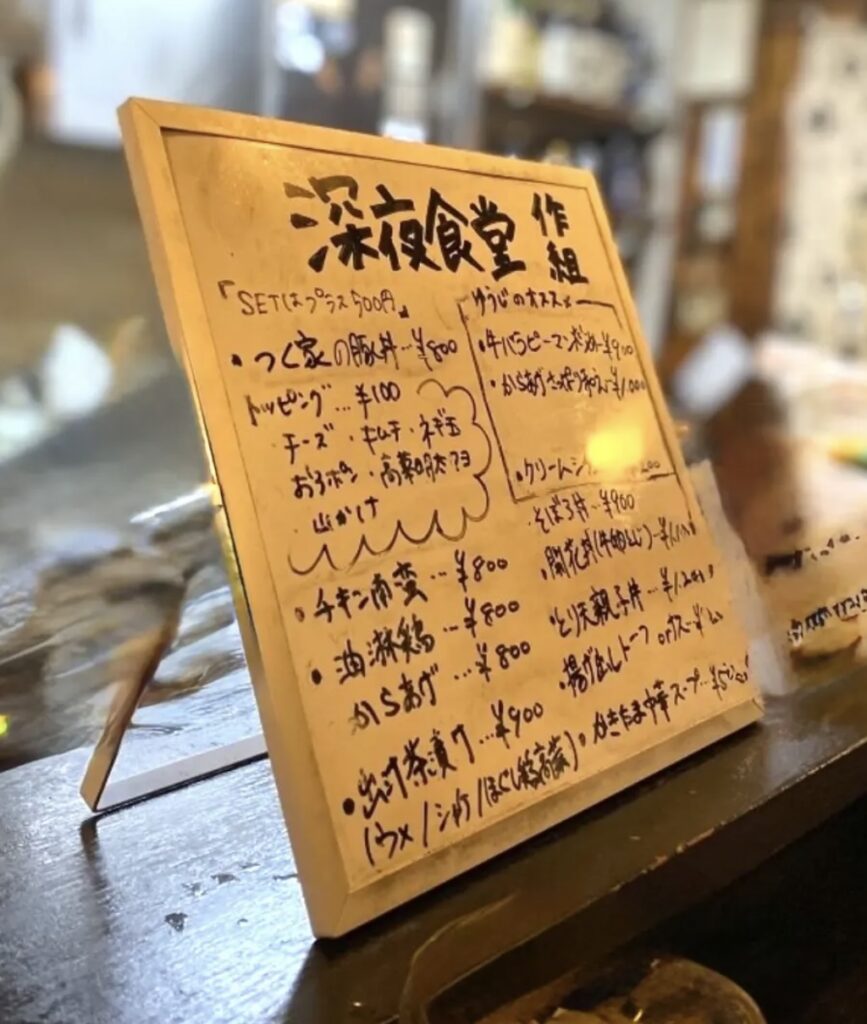 深夜食堂 作組
「SETはプラス500円」
・つく家の豚丼…¥800
トッピング…¥100
チーズ・キムチ・ネギ玉
おろポン・高菜明太マヨ
山かけ
・チキン南蛮…¥800
・油淋鶏…¥800
からあげ…¥800
・出汁茶漬け…¥900
(ウメ/シャケ/ほぐし
ゆうじのオススメ
・牛バラピーマン ¥900
・からあげ ¥1,000
・クリームシ
・そぼろ丼…¥900
・開花丼 …¥1,
・とり天親子丼…¥1,200
・揚げ出しトーフ or
・かきたま中華スープ…¥5